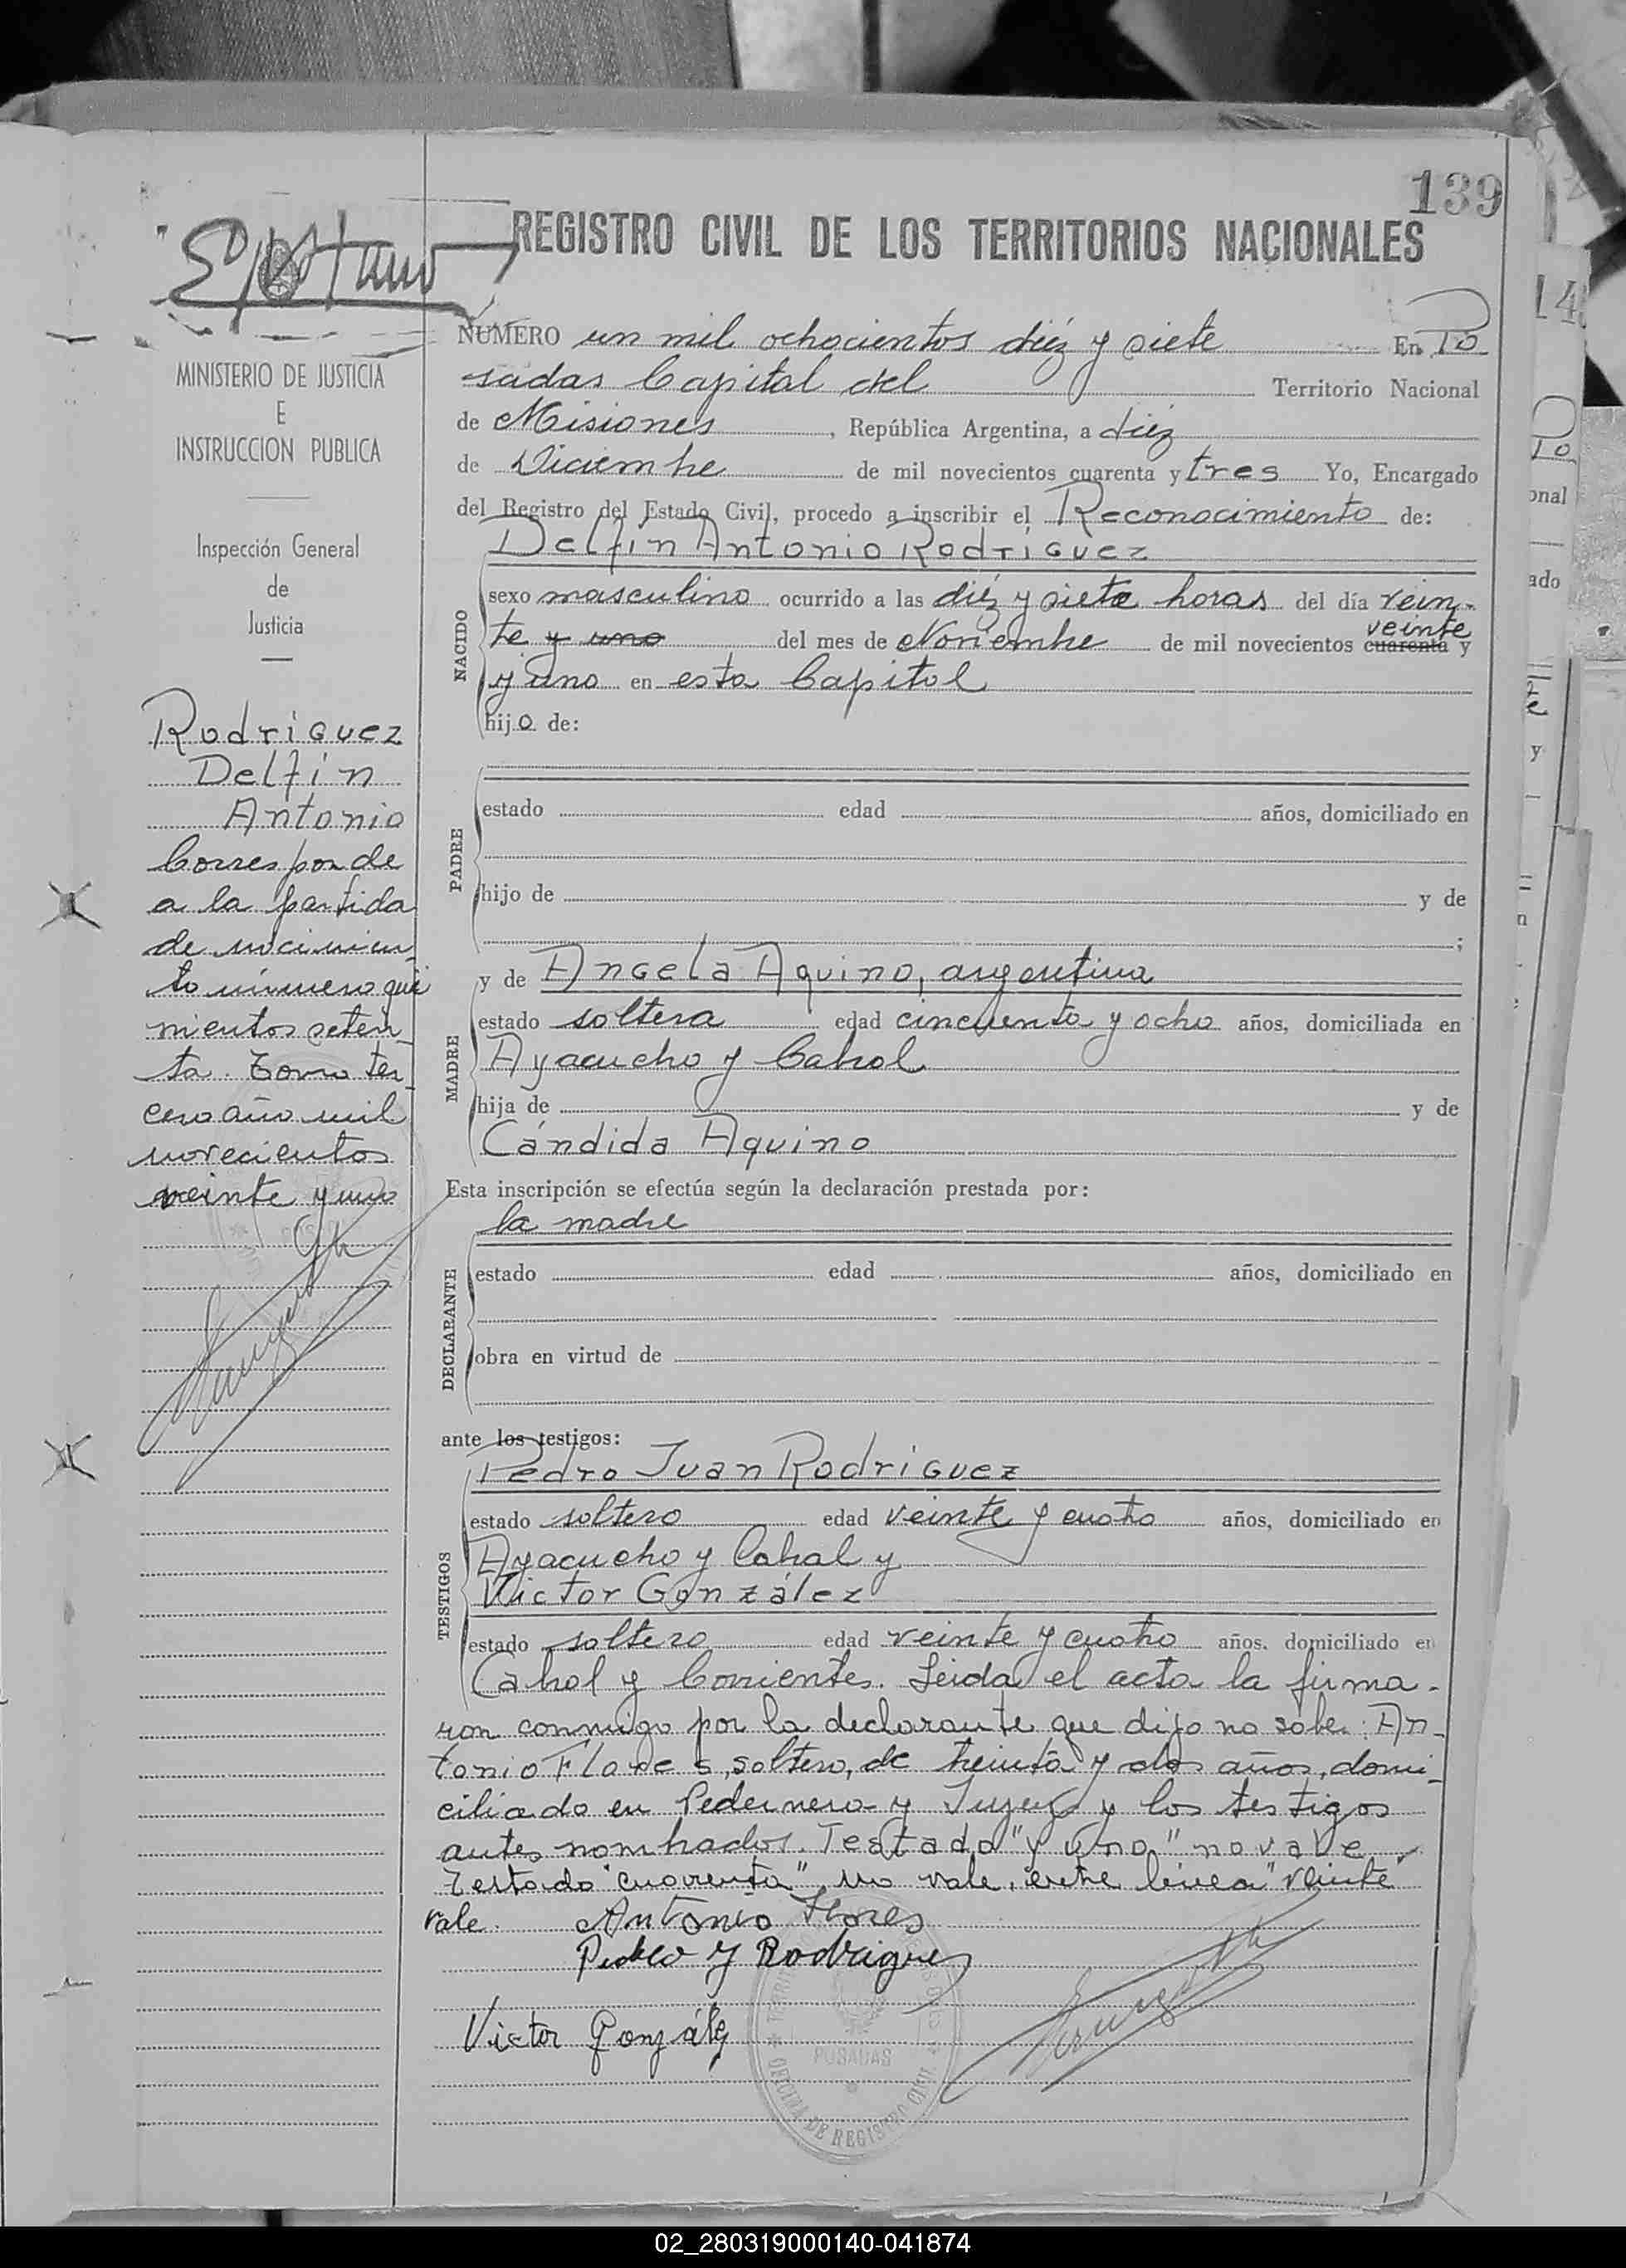 139
REGISTRO CIVIL DE LOS TERRITORIOS NACIONALES
MINISTERIO DE JUSTICIA
E
INSTRUCCION PUBLICA
Inspección General
de
Justicia
Rodriguez
Delfin
Antonio
Corresponde
a la partida
de nacimien
to número qui
nientos seten
ta. Tomo ter
cero año mil
novecientos
veinte y uno
NUMERO un mil ochocientos diéz y siete En Po
sadas Capital del Territorio Nacional
de Misiones, República Argentina, a diéz
de Diciembre de mil novecientos cuarenta y tres Yo, Encargado
del Registro del Estado Civil, procedo a inscribir el Reconocimiento de:
Delfin Antonio Rodriguez
NACIDO
sexo masculino ocurrido a las diéz y siete horas del día vein-
te y uno del mes de Noviembre de mil novecientos cuarenta veinte y
y uno en esta Capital
hijo de:
PADRE
estado edad años, domiciliado en
hijo de y de
;
y de Angela Aquino, argentina
MADRE
estado soltera edad cincuenta y ocho años, domiciliada en
Ayacucho y Cabral
hija de y de
Cándida Aquino
Esta inscripción se efectúa según la declaración prestada por:
la madre
DECLARANTE
estado edad años, domiciliado en
obra en virtud de
ante los testigos:
Pedro Juan Rodriguez
TESTIGOS
estado soltero edad veinte y cuatro años, domiciliado en
Ayacucho y Cabral y
Victor González
estado soltero edad veinte y cuatro años, domiciliado en
Cabral y Corrientes. Leida el acta la firma-
ron conmigo por la declarante que dijo no saber: An-
tonio Flores, soltero, de treinta y dos años, domi-
ciliado en Pedernera y Jujuy y los testigos
antes nombrados. Testado "y uno" no vale
Testado "cuarenta" no vale, entre linea "veinte"
vale. Antonio Flores
Pedro J Rodriguez
Victor González
POSADAS
OFICINA DE REGISTRO CIVIL
02_280319000140-041874